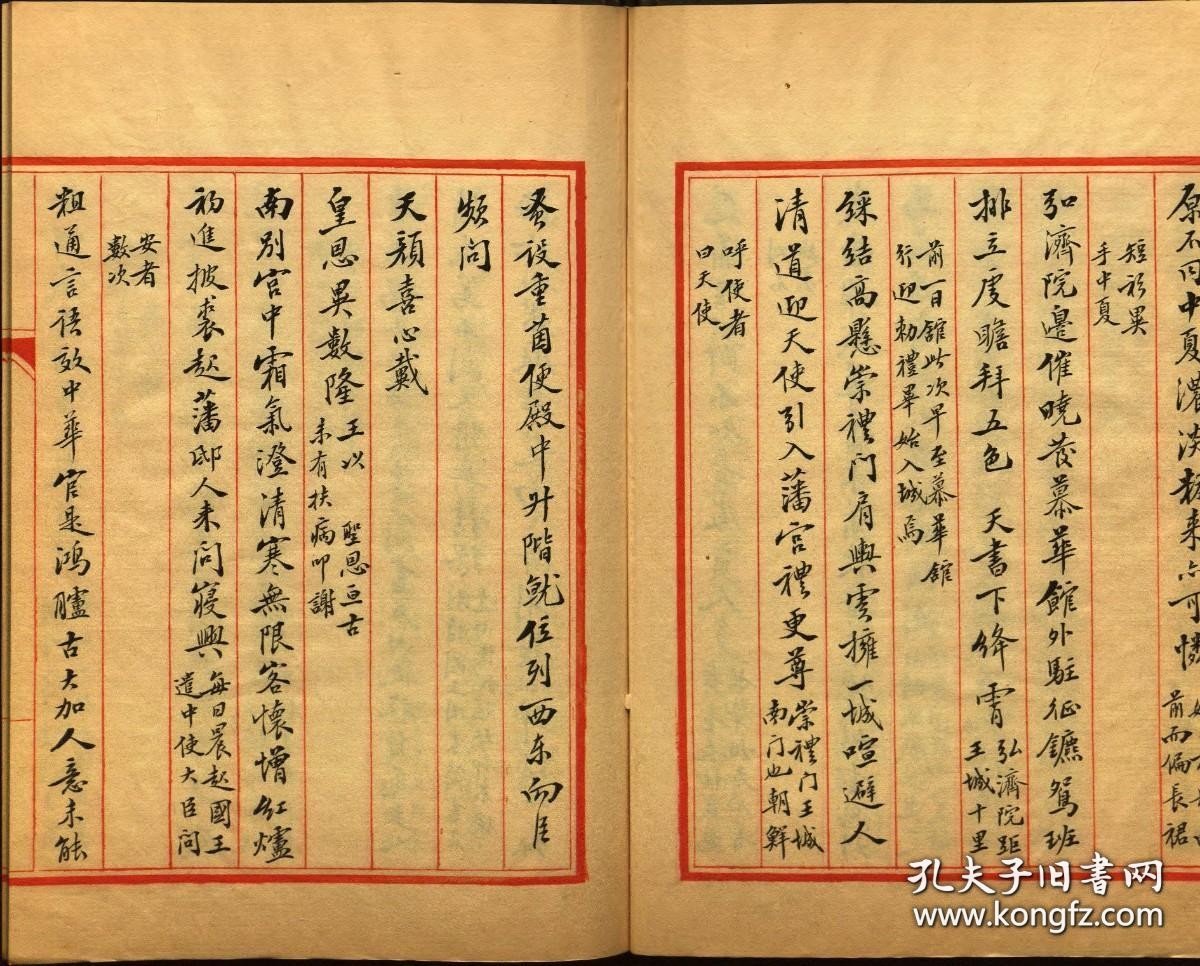 原不同中夏濃淡粧来亦可憐
前而偏長裙
短衫異
手中夏
弘濟院邊催曉發慕華館外駐征鑣鴛班
排立虔瞻拜五色 天書下絳霄
弘濟院距
王城十里
前一日館此次早至慕華館
行迎勅禮畢始入城焉
綵结高懸崇禮门肩輿雲擁一城喧避人
清道迎天使引入藩宫禮更尊
崇禮门王城
南门也朝鮮
呼使者
曰天使
蚤设重茵便殿中升階就位列西东向居
頻问
天顔喜心戴
皇恩異數隆
王以 聖恩亘古
未有扶病叩謝
南别宫中霜氣澄清寒無限客懷增红爐
初進披裘起藩邸人来问寢興
每日晨起國王
遣中使大臣问
安者
數次
粗通言语效中華官是鴻臚古大加人意未能
孔夫子旧书网
www.kongfz.com